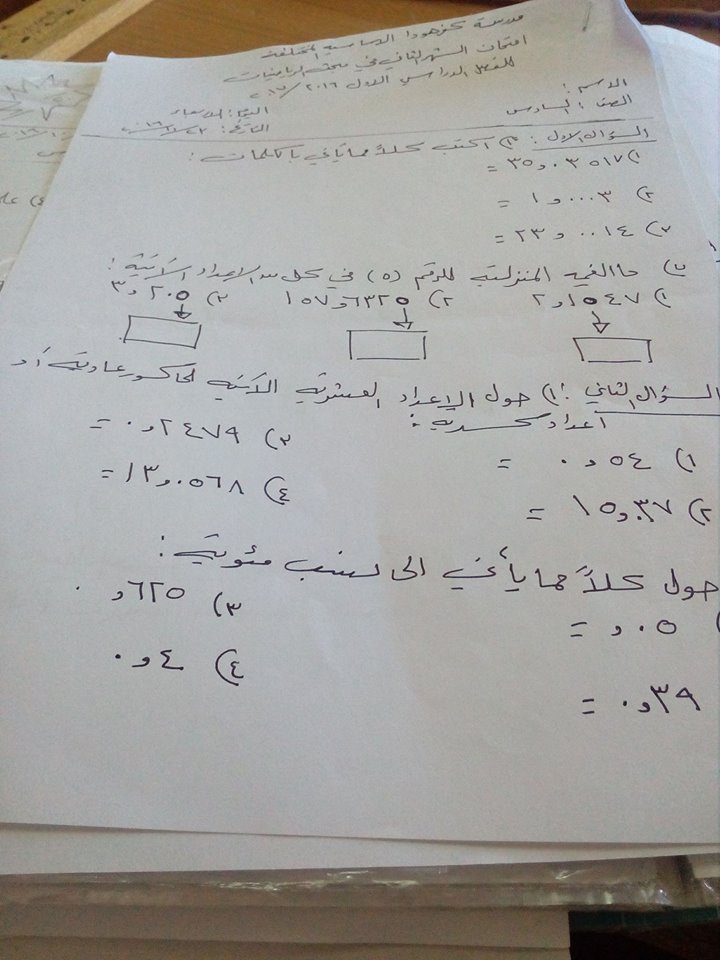 مدرسة كفرهودا الاساسية المختلطة
امتحان الشهر الثاني في مبحث الرياضيات
للفصل الدراسي الاول ٢٠١٦/٢٠١٥
الاسم:
الصف: السادس
اليوم: الاربعاء
التاريخ:
السؤال الاول: ٢) اكتب كلاً مما يأتي بالكلمات:
١) ٣٥٫٠٣٥١٧ =
٢) ١٫٠٠٠٣ =
٣) ٢٣٫٠٠١٤ =
ب) ما القيمة المنزلية للرقم (٥) في كل من الاعداد الآتية:
١) ٢٫١٥٤٧ ٢) ١٥٧٫٦٣٢٥ ٣) ٣٫٢٠٥
السؤال الثاني: ١) حول الاعداد العشرية الآتية لكسور عادية أو
اعداد كسرية:
١) ٠٫٥٤ = ٣) ٠٫٢٤٧٩ =
٢) ١٥٫٣٧ = ٤) ١٣٫٠٥٦٨ =
حول كلاً مما يأتي الى نسب مئوية:
٠٫٠٥ = ٣) ٠٫٦٢٥
٠٫٣٩ = ٤) ٠٫٤